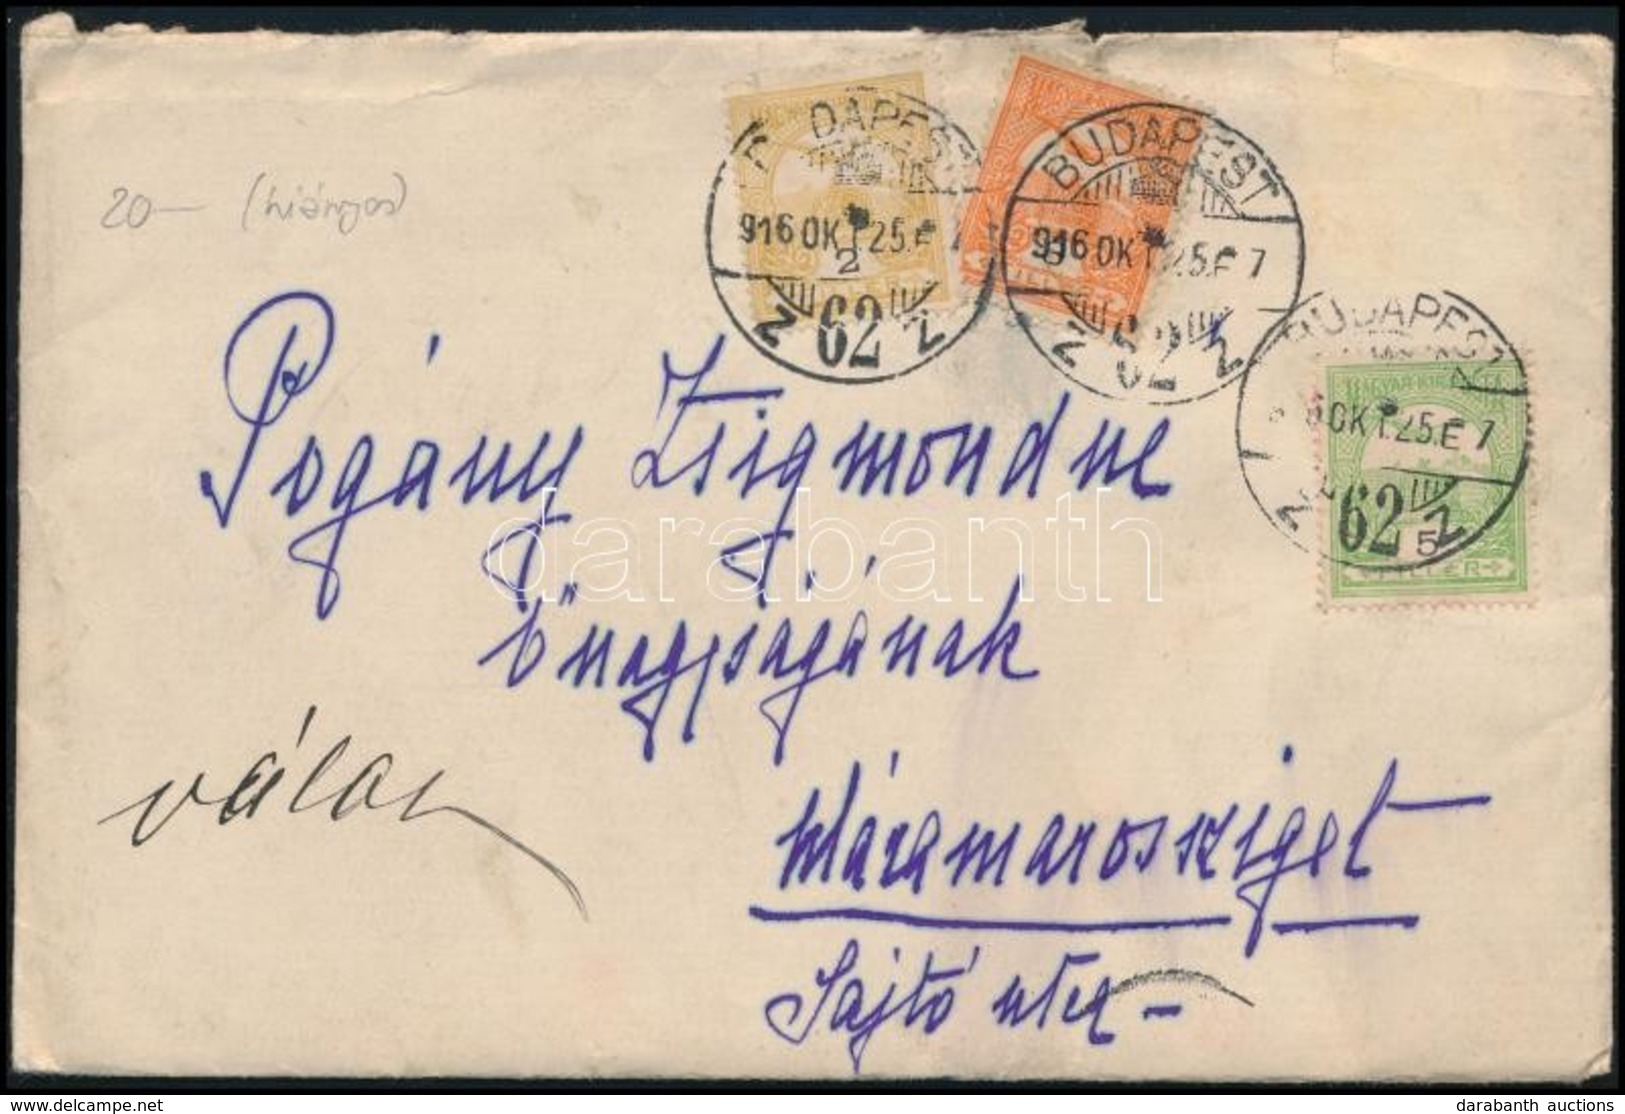 BUDAPEST
916 OKT. 25. E 7
62
BUDAPEST
916 OKT. 25. E 7
62
20— (hiányos)
BUDAPEST
OKT. 25. E 7
62
MAGYAR KIR. POSTA
5
FILLÉR
Pogány Zsigmondne
Őnagyságának
válasz
Máramarossziget
Sajtó utca –
darabanth
delcampe.net
darabanth auctions